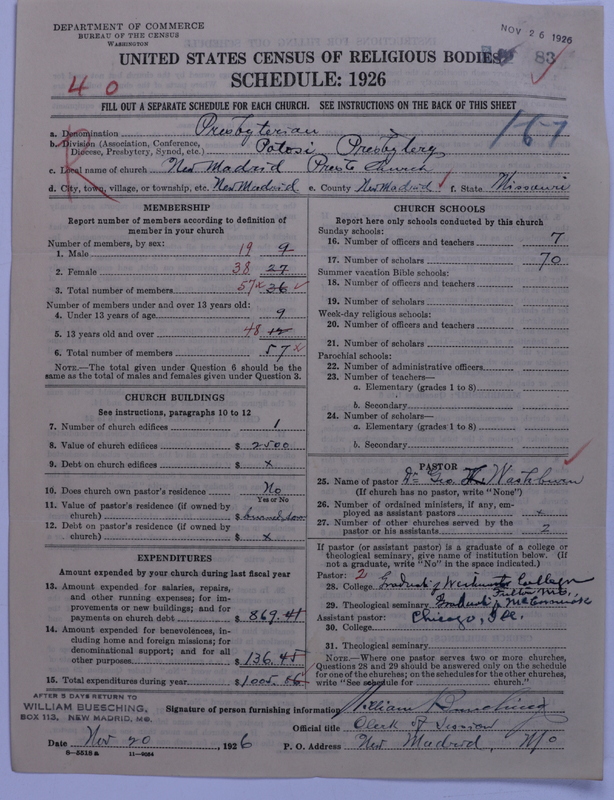 DEPARTMENT OF COMMERCE
BUREAU OF THE CENSUS
WASHINGTON
NOV 26 1926
83
UNITED STATES CENSUS OF RELIGIOUS BODIES
SCHEDULE: 1926
40
FILL OUT A SEPARATE SCHEDULE FOR EACH CHURCH. SEE INSTRUCTIONS ON THE BACK OF THIS SHEET
R
167
a. Denomination Presbyterian
b. Division (Association, Conference, Diocese, Presbytery, Synod, etc.) Potosi Presbytery
c. Local name of church New Madrid Presb Church
d. City, town, village, or township, etc. New Madrid e. County New Madrid f. State Missouri
MEMBERSHIP
Report number of members according to definition of
member in your church
Number of members, by sex:
1. Male 19 9
2. Female 38 27
3. Total number of members 57x 36
Number of members under and over 13 years old:
4. Under 13 years of age 9
5. 13 years old and over 48
6. Total number of members 57 x
NOTE.—The total given under Question 6 should be the
same as the total of males and females given under Question 3.
CHURCH BUILDINGS
See instructions, paragraphs 10 to 12
7. Number of church edifices 1
8. Value of church edifices $ 2500
9. Debt on church edifices $ x
10. Does church own pastor's residence No
Yes or No
11. Value of pastor's residence (if owned by
church) $
12. Debt on pastor's residence (if owned by
church) $ x
EXPENDITURES
Amount expended by your church during last fiscal year
13. Amount expended for salaries, repairs,
and other running expenses; for im-
provements or new buildings; and for
payments on church debt $ 869.41
14. Amount expended for benevolences, in-
cluding home and foreign missions; for
denominational support; and for all
other purposes $ 136.45
15. Total expenditures during year $ 1005.86
CHURCH SCHOOLS
Report here only schools conducted by this church
Sunday schools:
16. Number of officers and teachers 7
17. Number of scholars 70
Summer vacation Bible schools:
18. Number of officers and teachers
19. Number of scholars
Week-day religious schools:
20. Number of officers and teachers
21. Number of scholars
Parochial schools:
22. Number of administrative officers
23. Number of teachers—
a. Elementary (grades 1 to 8)
b. Secondary
24. Number of scholars—
a. Elementary (grades 1 to 8)
b. Secondary
PASTOR
25. Name of pastor Dr Geo Washburn
(If church has no pastor, write "None")
26. Number of ordained ministers, if any, em-
ployed as assistant pastors x
27. Number of other churches served by the
pastor or his assistants 2
If pastor (or assistant pastor) is a graduate of a college or
theological seminary, give name of institution below. (If
not a graduate, write "No" in the space indicated.)
Pastor: 2
28. College Graduate of Westminster College
Fulton Mo.
29. Theological seminary Graduate of McCormick
Assistant pastor: Chicago, Ill.
30. College
31. Theological seminary
NOTE.—Where one pastor serves two or more churches,
Questions 28 and 29 should be answered only on the schedule
for one of the churches; on the schedules for the other churches,
write "See schedule for church."
AFTER 5 DAYS RETURN TO
WILLIAM BUESCHING,
BOX 113, NEW MADRID, MO.
Signature of person furnishing information William Buesching
Official title Clerk of Session
Date Nov 20, 1926 P. O. Address New Madrid, Mo
8—5518a 11—9064